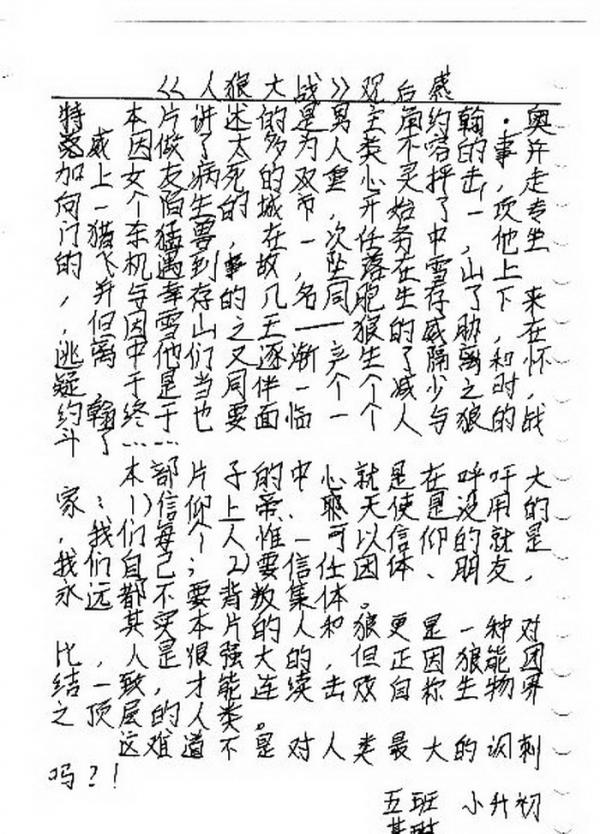 《人狼大战》观后感
本片讲述的是男主角约翰·奥
特威因做了太多的为人类不容的事,并
加上女友病死的双重心灵抨击,走
向一个陌生的城市,开始了一项专
门猎猛兽在一次任务中,他坐
的飞机遇到事故,坠落在雪山上
,并与幸存的几名同胞生存了下来
,但因雪山之王——狼的威胁,在
逃离中他们又逐渐产生了隔离和怀
疑,于是当同伴一个个减少之时,
约翰终于也要面临一个人与狼的战
斗了……
本部片子的中心就是在呼吁大
家:1)信仰上帝、耶天使是没用的
,我们每个人惟一可以信仰的就是
我们自己;2)要信任体、朋友,
永远都不要背叛集体。
其实本片的人和狼更是一种对
比,人是很强大的,但正因狼能团
结一致,才能连续击败自称生物界
之顶层的人类。
这难道不是对人类最大的讽刺
吗?!
五班 小升初